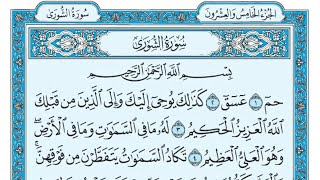 سُورَةُ الشُّورَىٰ
الجُزءُ الخَامِسُ وَالعِشْرُونَ
سُورَةُ الشُّورَىٰ
بِسْمِ اللَّهِ الرَّحْمَٰنِ الرَّحِيمِ
حمٓ ﴿١﴾ عٓسٓقٓ ﴿٢﴾ كَذَٰلِكَ يُوحِىٓ إِلَيْكَ وَإِلَى ٱلَّذِينَ مِن قَبْلِكَ
ٱللَّهُ ٱلْعَزِيزُ ٱلْحَكِيمُ ﴿٣﴾ لَهُۥ مَا فِى ٱلسَّمَٰوَٰتِ وَمَا فِى ٱلْأَرْضِ ۖ
وَهُوَ ٱلْعَلِىُّ ٱلْعَظِيمُ ﴿٤﴾ تَكَادُ ٱلسَّمَٰوَٰتُ يَتَفَطَّرْنَ مِن فَوْقِهِنَّ ۚ